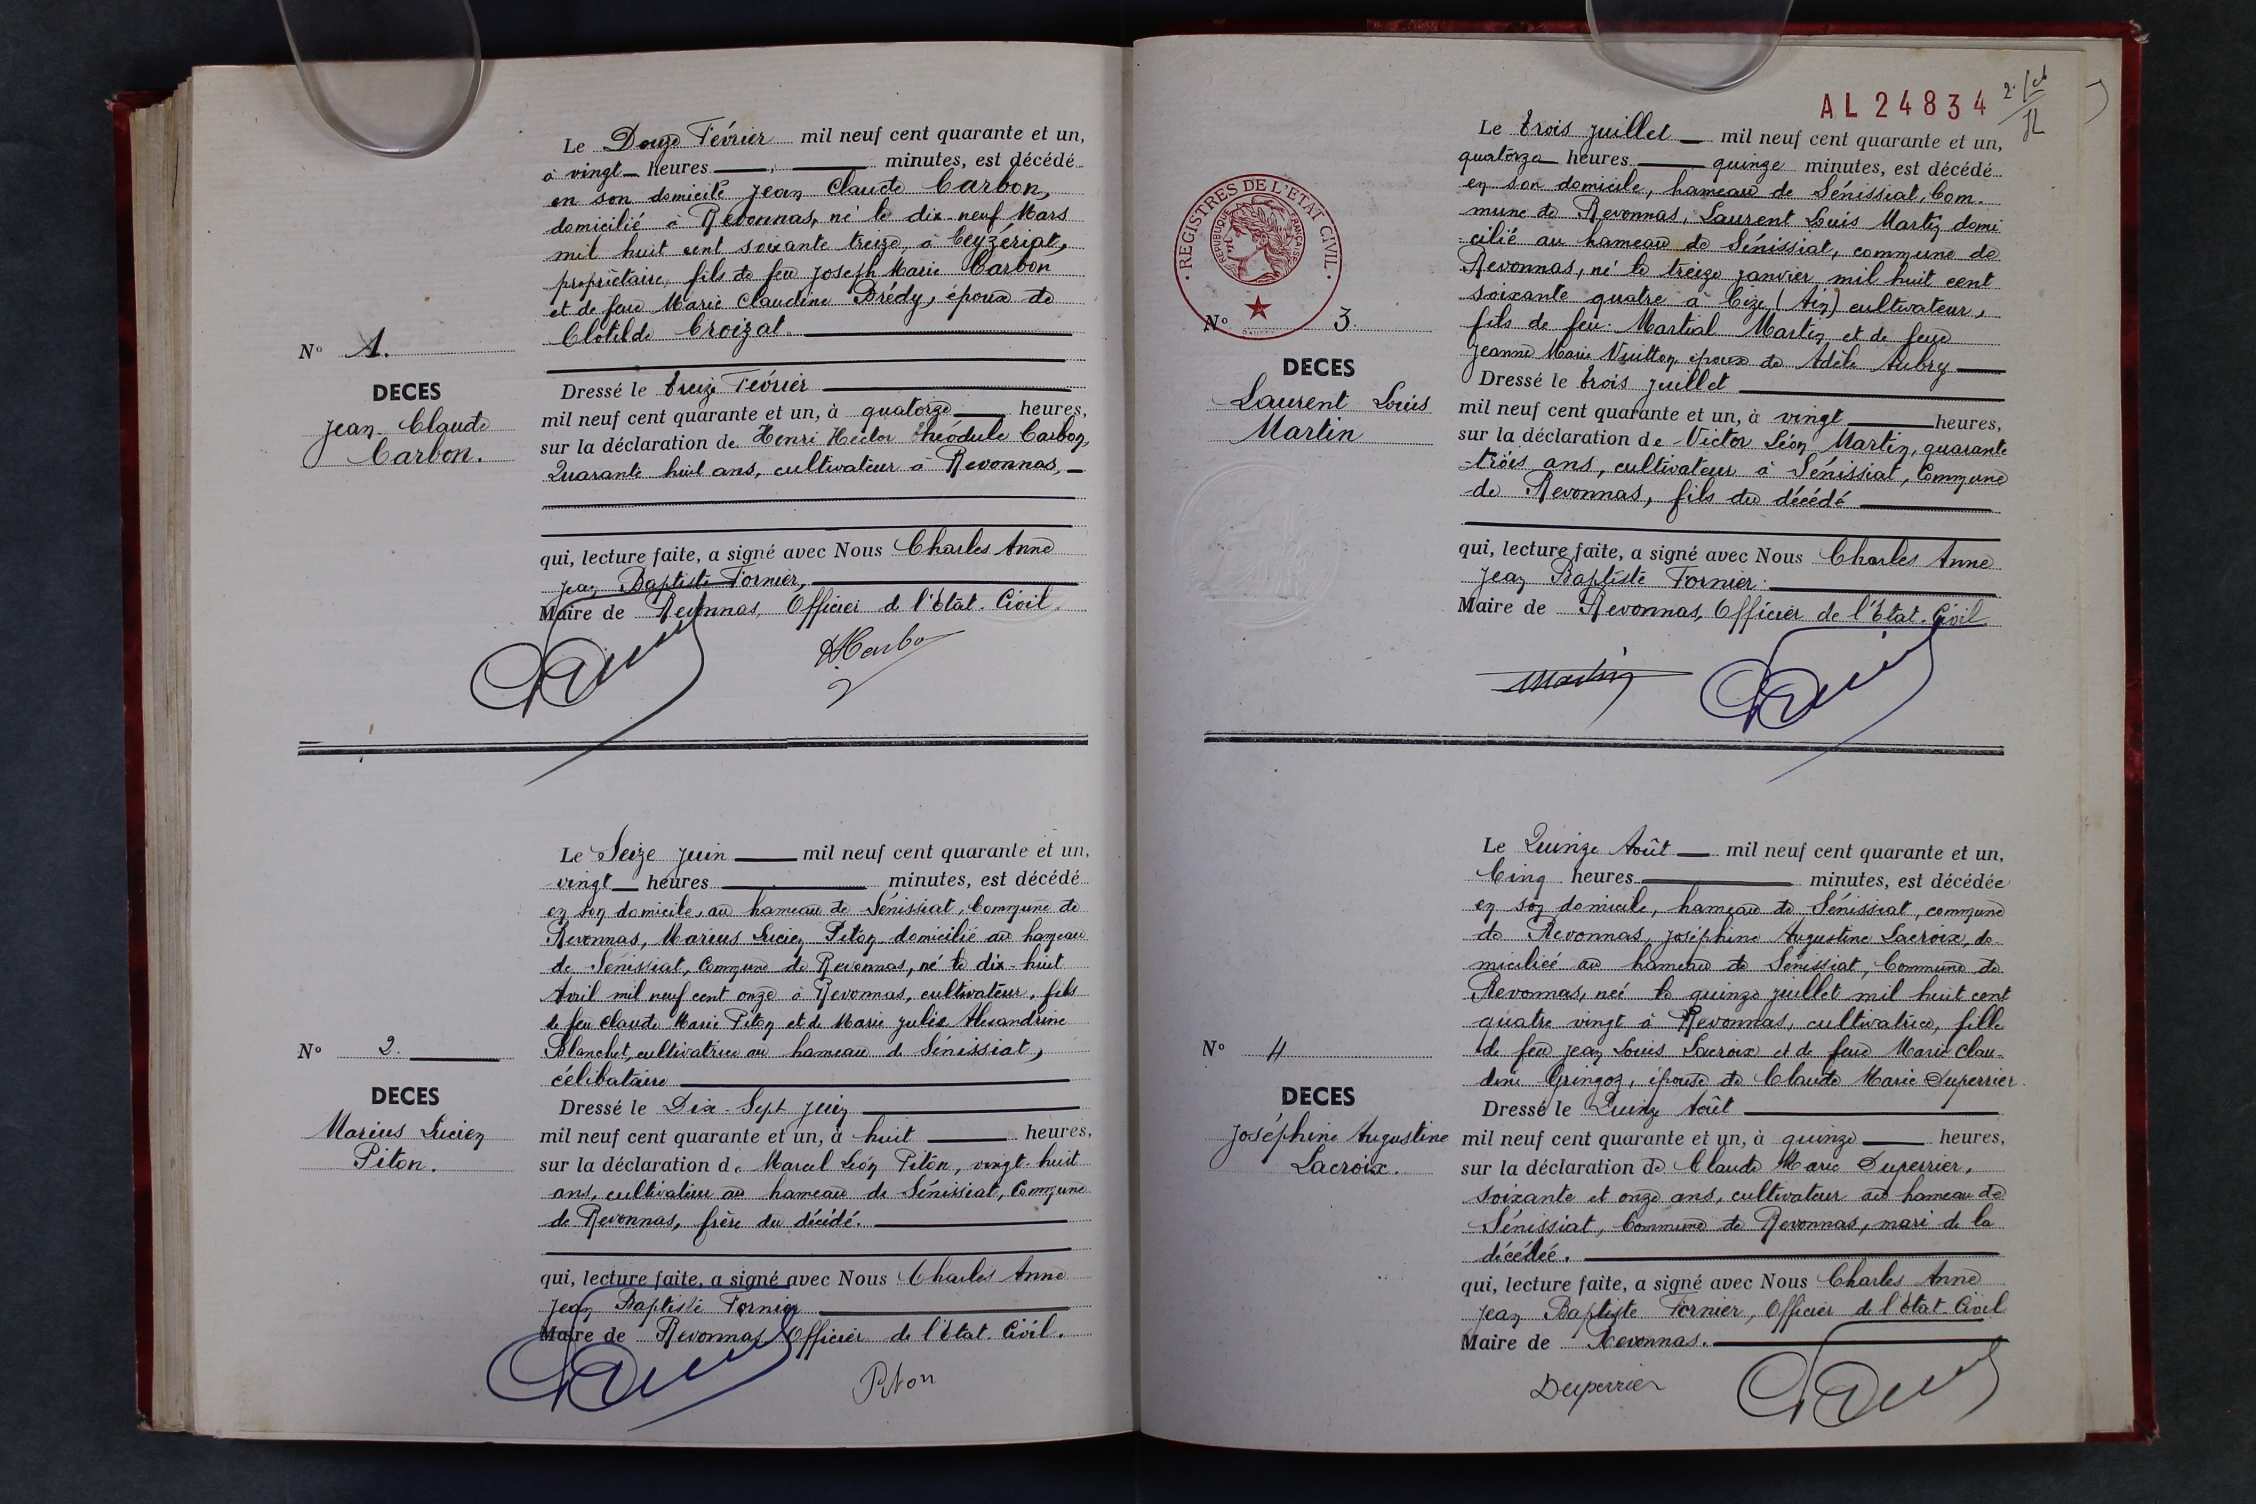 Le Douze Février mil neuf cent quarante et un,
à vingt heures minutes, est décédé
en son domicile Jean Claude Carbon,
domicilié à Revonnas, né le dix-neuf Mars
mil huit cent soixante treize, à Ceyzériat,
propriétaire, fils de feu Joseph Marie Carbon
et de feue Marie Claudine Brédy, époux de
Clotilde Croizat.
N° 1.
DECES
Jean Claude
Carbon.
Dressé le treize Février
mil neuf cent quarante et un, à quatorze heures,
sur la déclaration de Henri Hector Théodule Carbon,
Quarante huit ans, cultivateur à Revonnas,
qui, lecture faite, a signé avec Nous Charles Anne
Jean Baptiste Fornier,
Maire de Revonnas, Officier de l'Etat-Civil.
Le Seize Juin mil neuf cent quarante et un,
vingt heures minutes, est décédé
en son domicile, au hameau de Sénissiat, Commune de
Revonnas, Marius Lucien Piton domicilié au hameau
de Sénissiat, Commune de Revonnas, né le dix-huit
Avril mil neuf cent onze à Revonnas, cultivateur, fils
de feu Claude Marie Piton et de Marie Julie Alexandrine
Blanchet, cultivatrice au hameau de Sénissiat,
célibataire
N° 2.
DECES
Marius Lucien
Piton.
Dressé le Dix-Sept Juin
mil neuf cent quarante et un, à huit heures,
sur la déclaration de Marcel Léon Piton, vingt-huit
ans, cultivateur au hameau de Sénissiat, Commune
de Revonnas, frère du décédé.
qui, lecture faite, a signé avec Nous Charles Anne
Jean Baptiste Fornier
Maire de Revonnas Officier de l'Etat-Civil.
Piton
AL 24834
Le trois Juillet mil neuf cent quarante et un,
quatorze heures quinze minutes, est décédé
en son domicile, hameau de Sénissiat, Com-
mune de Revonnas, Laurent Louis Martin domi
cilié au hameau de Sénissiat, commune de
Revonnas, né le treize janvier mil huit cent
soixante quatre à Cize (Ain) cultivateur,
fils de feu Martial Martin et de feue
Jeanne Marie Vuitton époux de Adèle Aubry
REGISTRES DE L'ETAT CIVIL
REPUBLIQUE FRANÇAISE
N° 3.
DECES
Laurent Louis
Martin
Dressé le trois Juillet
mil neuf cent quarante et un, à vingt heures,
sur la déclaration de Victor Léon Martin, quarante
-trois ans, cultivateur à Sénissiat, Commune
de Revonnas, fils du décédé
qui, lecture faite, a signé avec Nous Charles Anne
Jean Baptiste Fornier.
Maire de Revonnas, Officier de l'Etat-Civil
Martin
Le Quinze Août mil neuf cent quarante et un,
Cinq heures minutes, est décédée
en son domicile, hameau de Sénissiat, commune
de Revonnas, Joséphine Augustine Lacroix, do
miciliée au hameau de Sénissiat, Commune de
Revonnas, née le quinze juillet mil huit cent
quatre vingt à Revonnas, cultivatrice, fille
de feu Jean Louis Lacroix et de feue Marie Clau-
dine Gringoz, épouse de Claude Marie Duperrier
N° 4
DECES
Joséphine Augustine
Lacroix.
Dressé le Quinze Août
mil neuf cent quarante et un, à quinze heures,
sur la déclaration de Claude Marie Duperrier,
soixante et onze ans, cultivateur au hameau de
Sénissiat, Commune de Revonnas, mari de la
décédée.
qui, lecture faite, a signé avec Nous Charles Anne
Jean Baptiste Fornier, Officier de l'Etat-Civil
Maire de Revonnas.
Duperrier